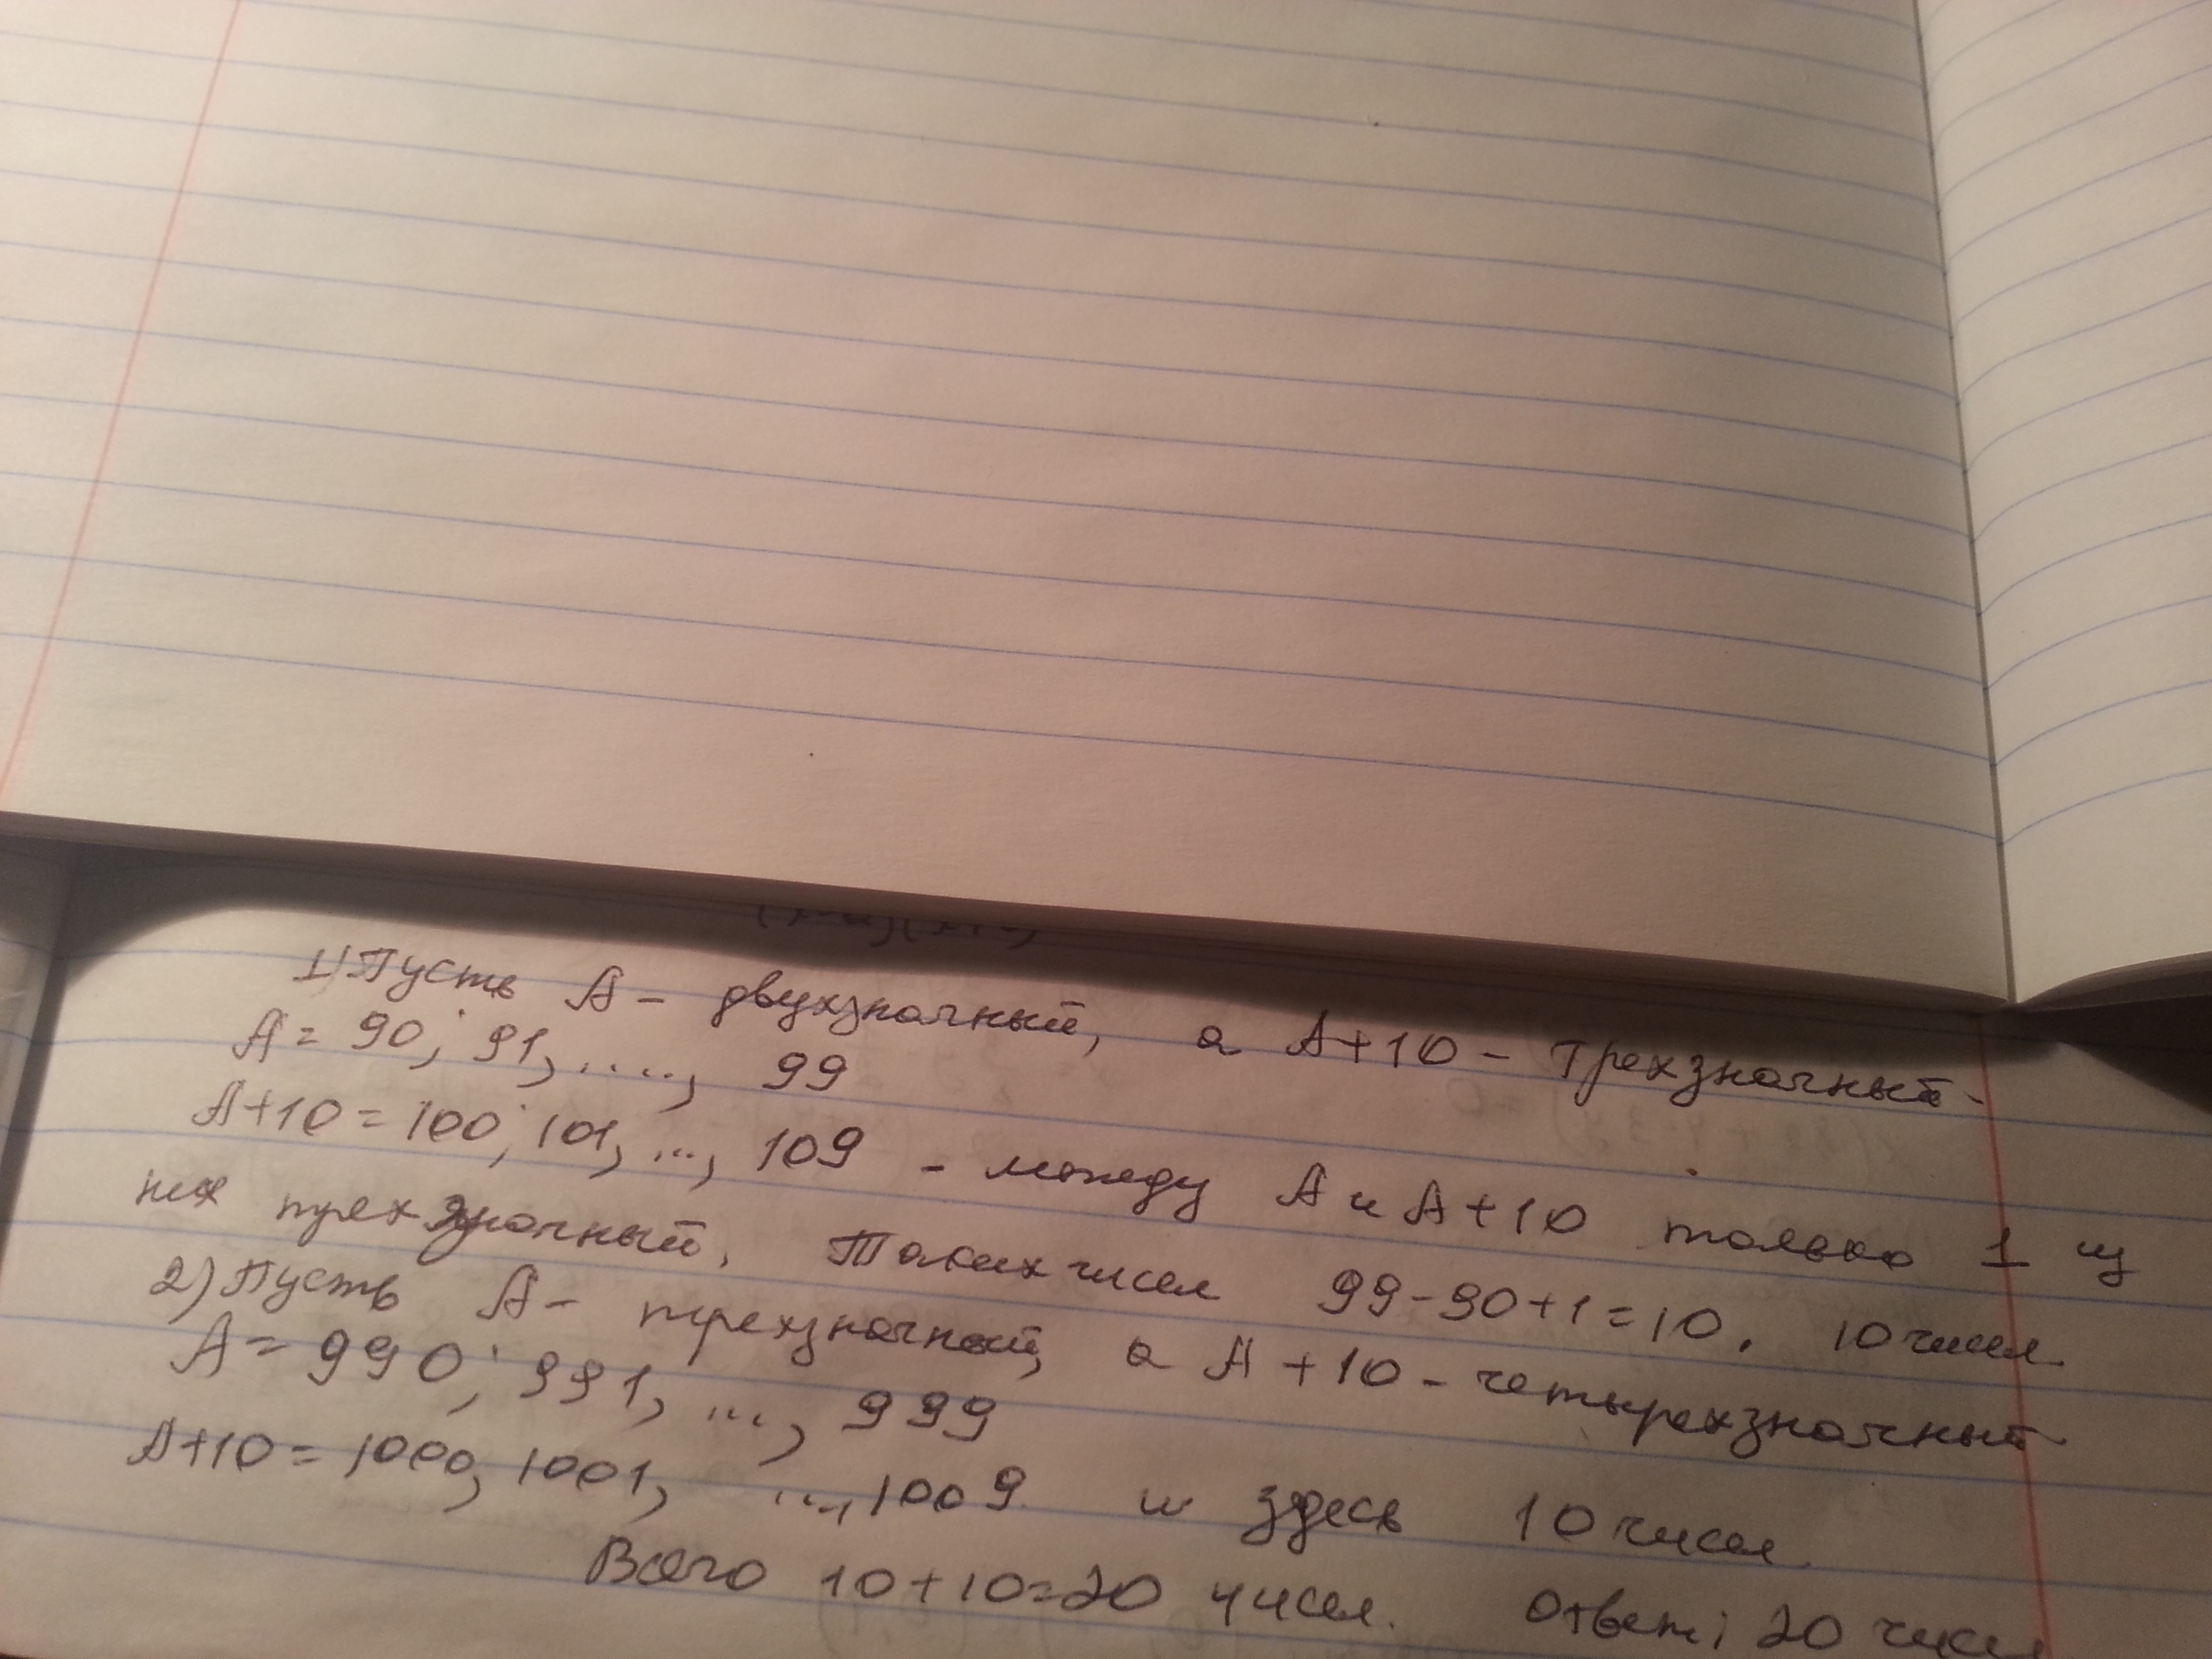 1) Пусть А - двухзначный, а А+10 - трехзначный.
А = 90; 91, ....., 99
А+10 = 100; 101, ..., 109 - между А и А+10 только 1 из
них трехзначный. Таких чисел 99-90+1=10. 10 чисел
2) Пусть А - трехзначный, а А+10 - четырехзначный
А = 990; 991, ..., 999
А+10 = 1000, 1001, ..., 1009 и здесь 10 чисел.
Всего 10+10=20 чисел. Ответ: 20 чисел